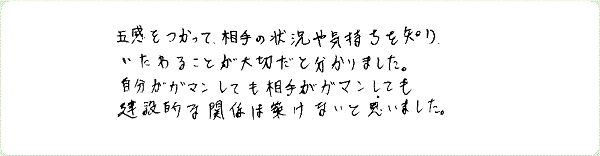 五感をつかって、相手の状況や気持ちを知り、
いたわることが大切だと分かりました。
自分がガマンしても相手がガマンしても
建設的な関係は築けないと思いました。